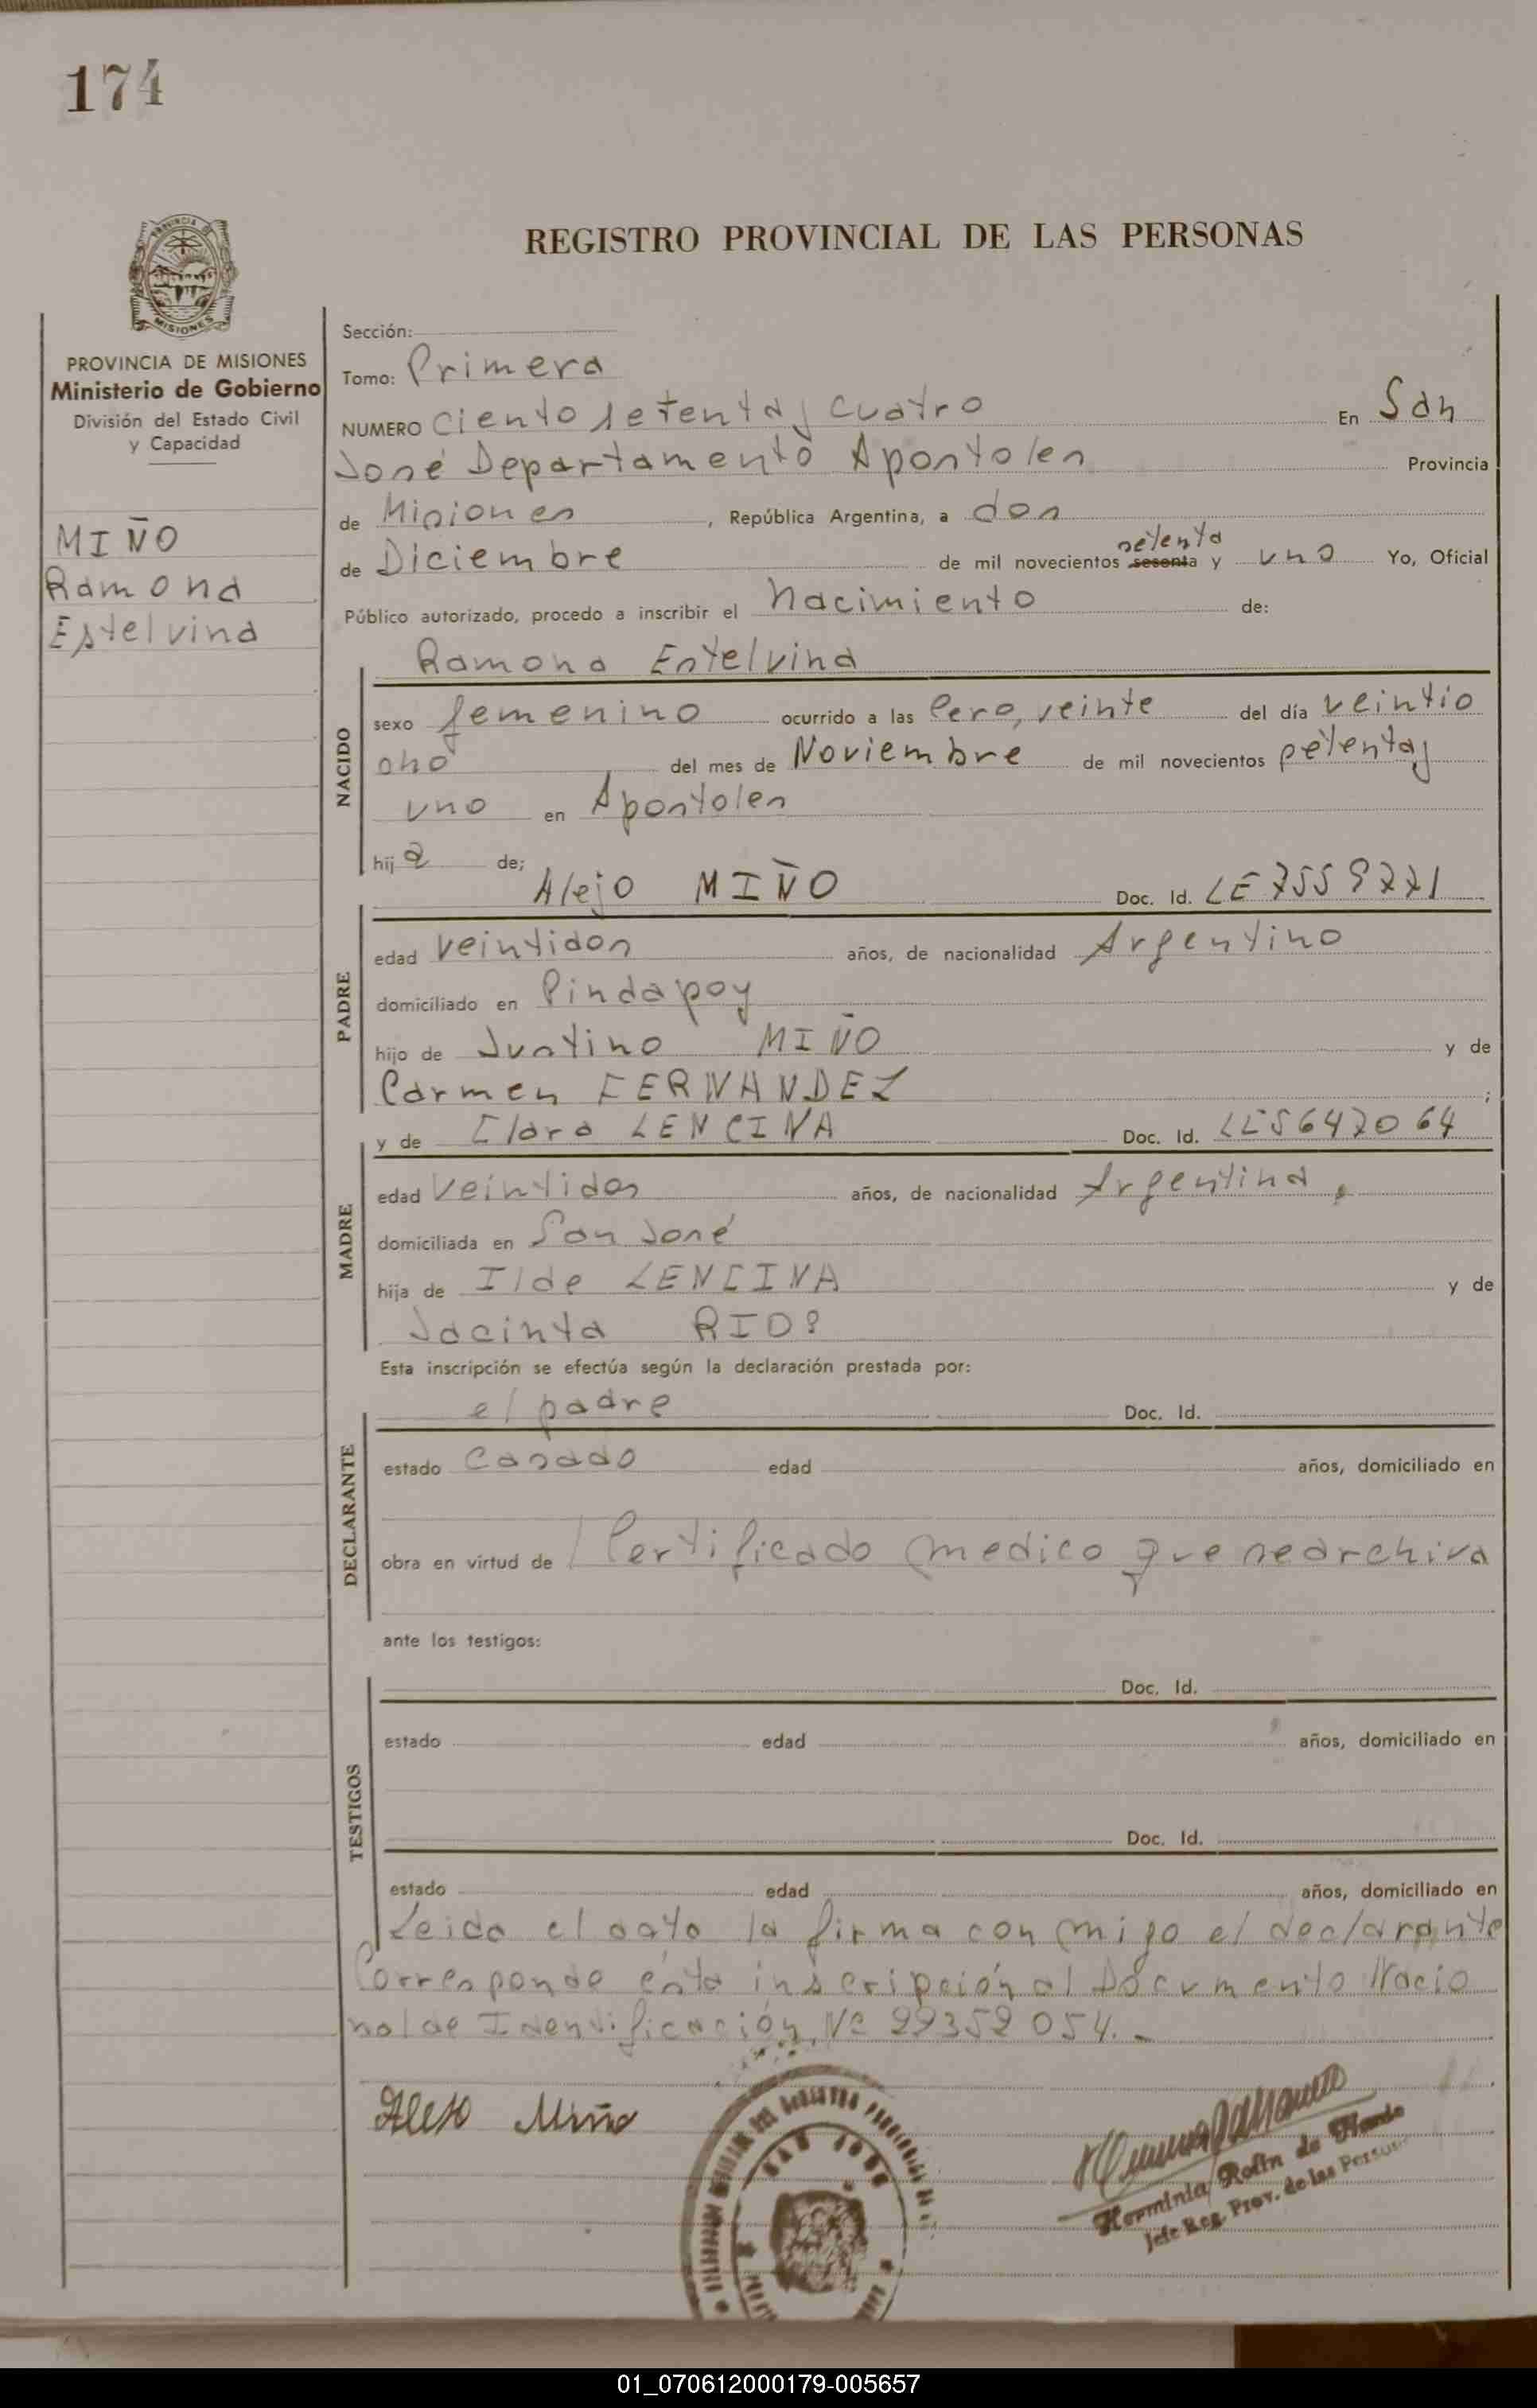 174
PROVINCIA DE MISIONES
Ministerio de Gobierno
División del Estado Civil
y Capacidad
MIÑO
Ramona
Estelvina
REGISTRO PROVINCIAL DE LAS PERSONAS
Sección:
Tomo: Primera
NUMERO Ciento setenta y cuatro En San
José Departamento Apostoles Provincia
de Misiones, República Argentina, a dos
setenta
de Diciembre de mil novecientos sesenta y uno Yo, Oficial
Público autorizado, procedo a inscribir el nacimiento de:
Ramona Estelvina
NACIDO
sexo femenino ocurrido a las cero, veinte del día veintio
cho del mes de Noviembre de mil novecientos setenta y
uno en Apostoles
hija de;
Alejo MIÑO Doc. Id. LE 7559771
PADRE
edad veintidos años, de nacionalidad Argentino
domiciliado en Pindapoy
hijo de Justino MIÑO y de
Carmen FERNANDEZ;
y de Clara LENCINA Doc. Id. LC 5647064
MADRE
edad veintidos años, de nacionalidad Argentina.
domiciliada en San José
hija de Ilde LENCINA y de
Jacinta RIOS
Esta inscripción se efectúa según la declaración prestada por:
el padre Doc. Id.
DECLARANTE
estado Casado edad años, domiciliado en
obra en virtud de Certificado medico que se archiva
ante los testigos:
Doc. Id.
TESTIGOS
estado edad años, domiciliado en
Doc. Id.
estado edad años, domiciliado en
Leida el acta la firma con migo el declarante
Corresponde ésta inscripción al Documento Nacio
nal de Identificación, Nº 22352054.-
Alejo Miño
SAN JOSE
Herminia Rolin de
Jefe Reg. Prov. de las Personas
01_070612000179-005657